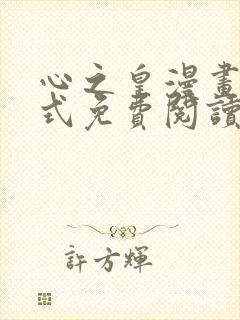 心之皇漫畫
式免費閱讀
許方輝